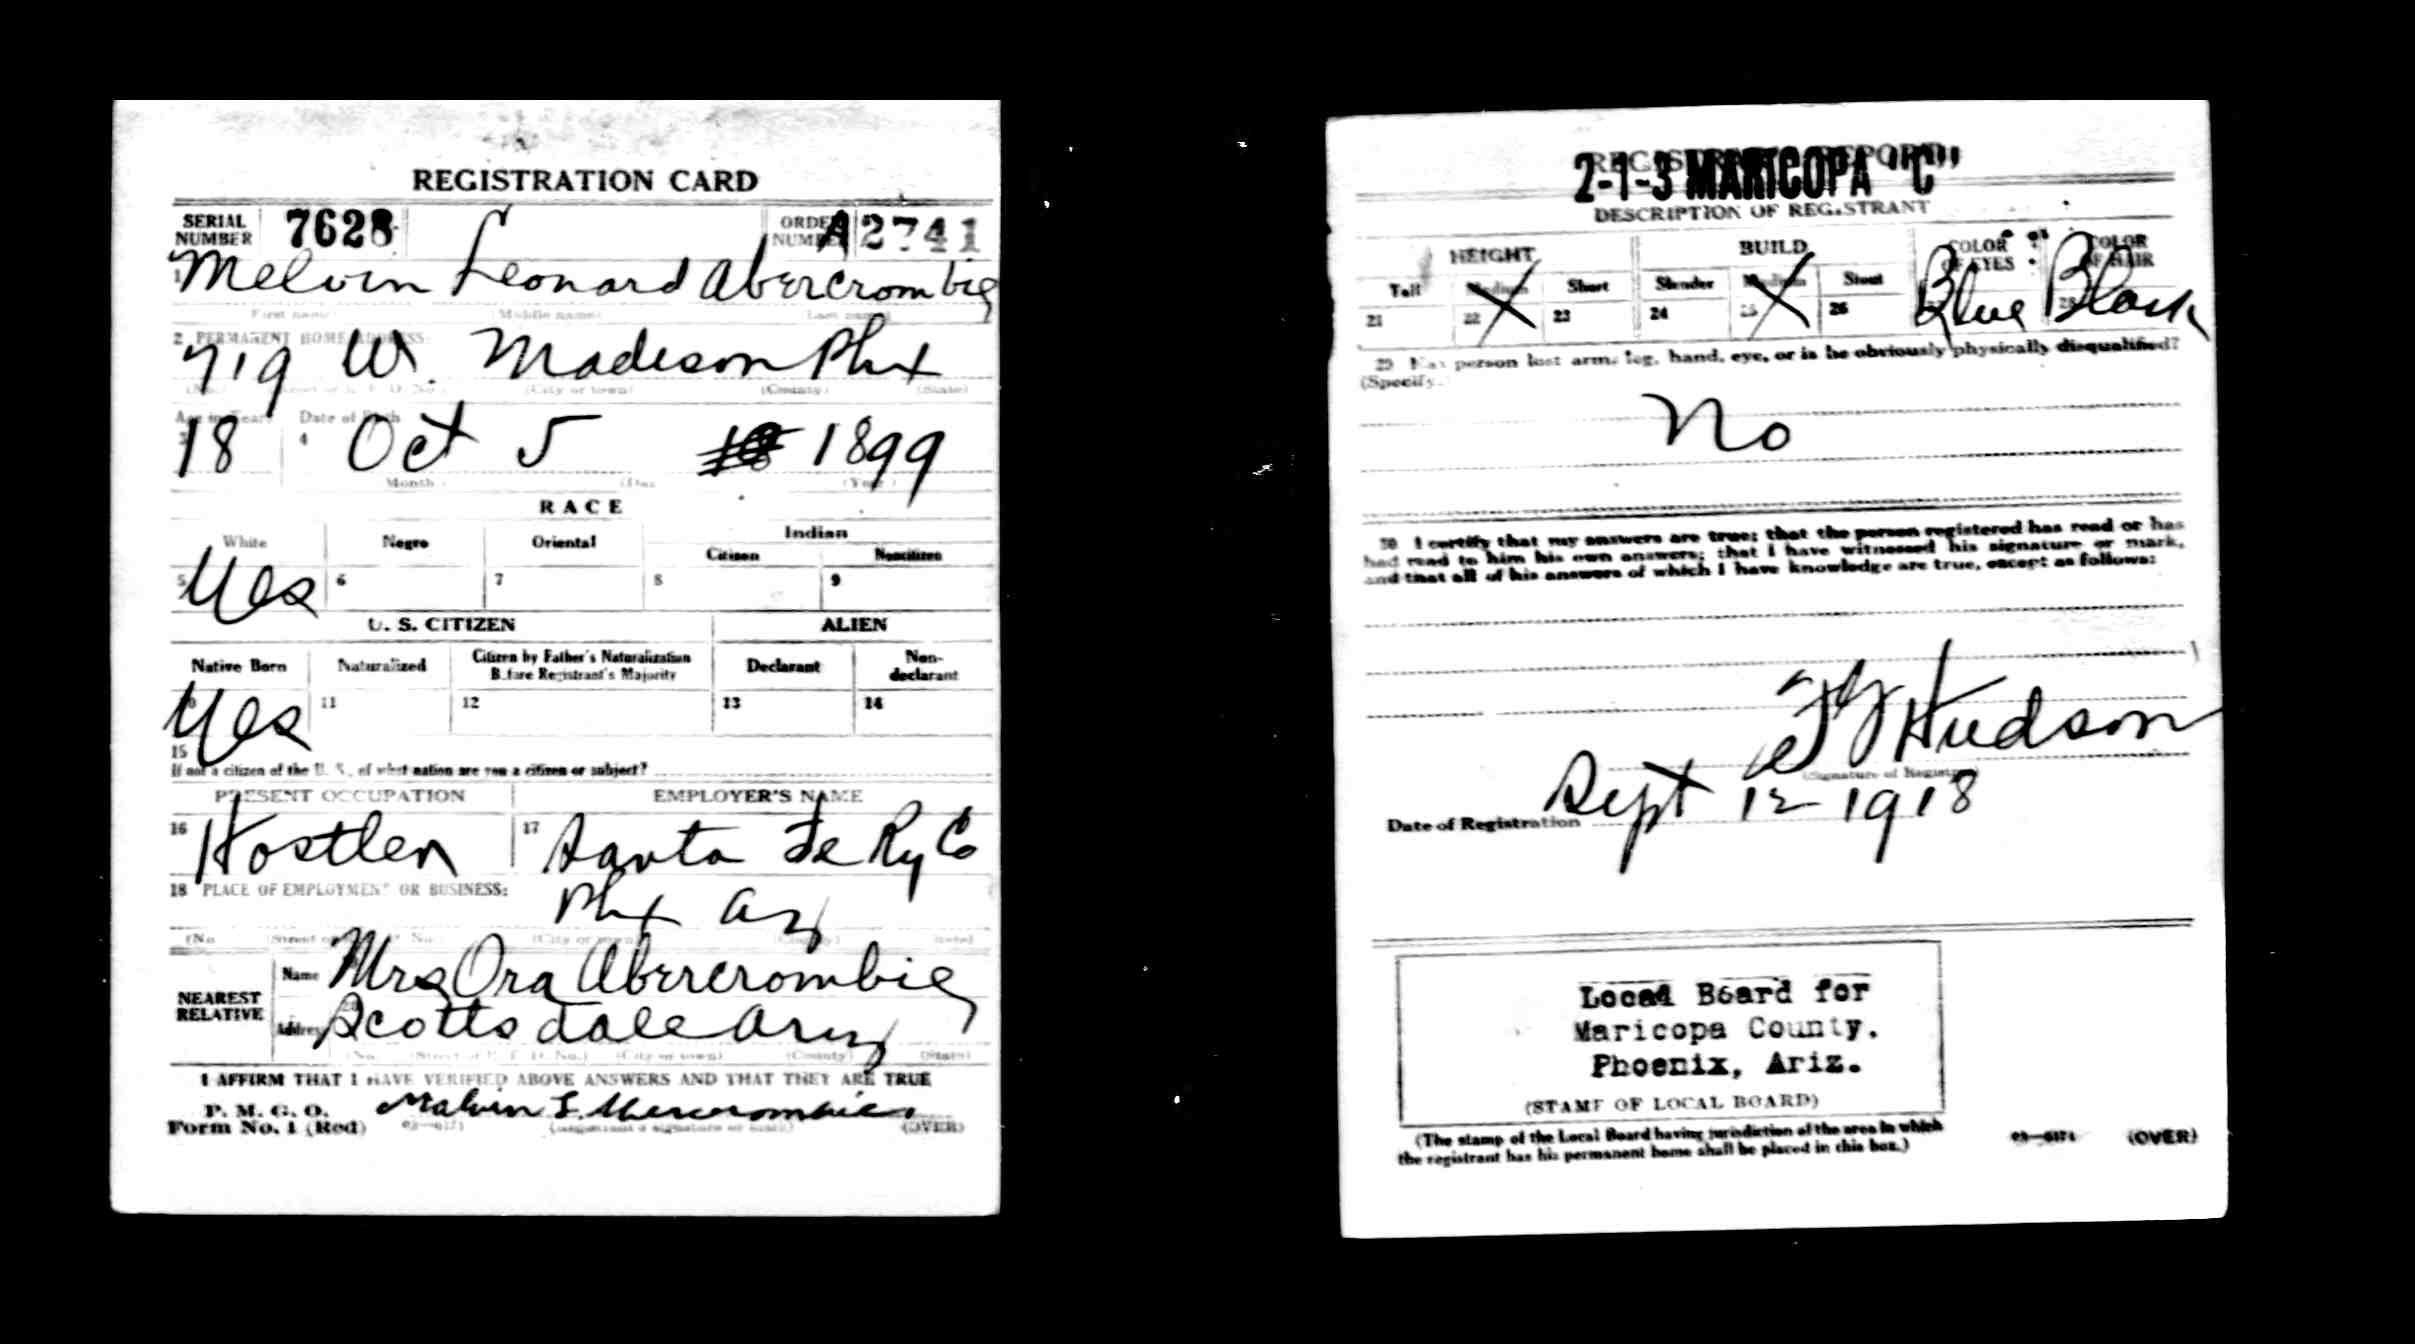 REGISTRATION CARD
SERIAL NUMBER 7628 ORDER NUMBER A2741
1 Melvin Leonard Abercrombie
First name Middle name Last name
2 PERMANENT HOME ADDRESS:
719 W. Madison Phx
(No.) (City or town) (County) (State)
Age in Years Date of Birth
3 18 4 Oct 5 1899
Month. (Day (Year.)
RACE
White Negro Oriental Indian
Citizen Noncitizen
5 Yes 6 7 8 9
U. S. CITIZEN ALIEN
Native Born Naturalized Citizen by Father's Naturalization Before Registrant's Majority Declarant Non-declarant
10 Yes 11 12 13 14
15
If not a citizen of the U. S., of what nation are you a citizen or subject?
PRESENT OCCUPATION EMPLOYER'S NAME
16 Hostler 17 Santa Fe Ry Co
18 PLACE OF EMPLOYMENT OR BUSINESS:
Phx Az
(No. (Street or No.) (City or town) (County) (State)
NEAREST RELATIVE
Name Mrs Ora Abercrombie
Address Scottsdale Ariz
(No.) (Street or R. F. D. No.) (City or town) (County) (State)
I AFFIRM THAT I HAVE VERIFIED ABOVE ANSWERS AND THAT THEY ARE TRUE
P. M. G. O.
Form No. 1 (Red) Melvin L. Abercrombie
03—6171 (Registrant's signature or mark) (OVER)
REGISTRAR'S REPORT
2-1-3 MARICOPA "C"
DESCRIPTION OF REGISTRANT
HEIGHT BUILD COLOR OF EYES COLOR OF HAIR
Tall Medium Short Slender Medium Stout
21 22 X 23 24 25 X 26 Blue 28 Black
29 Has person lost arm, leg, hand, eye, or is he obviously physically disqualified?
(Specify.)
No
30 I certify that my answers are true; that the person registered has read or has
had read to him his own answers; that I have witnessed his signature or mark,
and that all of his answers of which I have knowledge are true, except as follows:
Hudson
(Signature of Registrar)
Date of Registration Sept 12 1918
Local Board for
Maricopa County.
Phoenix, Ariz.
(STAMP OF LOCAL BOARD)
(The stamp of the Local Board having jurisdiction of the area in which
the registrant has his permanent home shall be placed in this box.)
03—6171 (OVER)